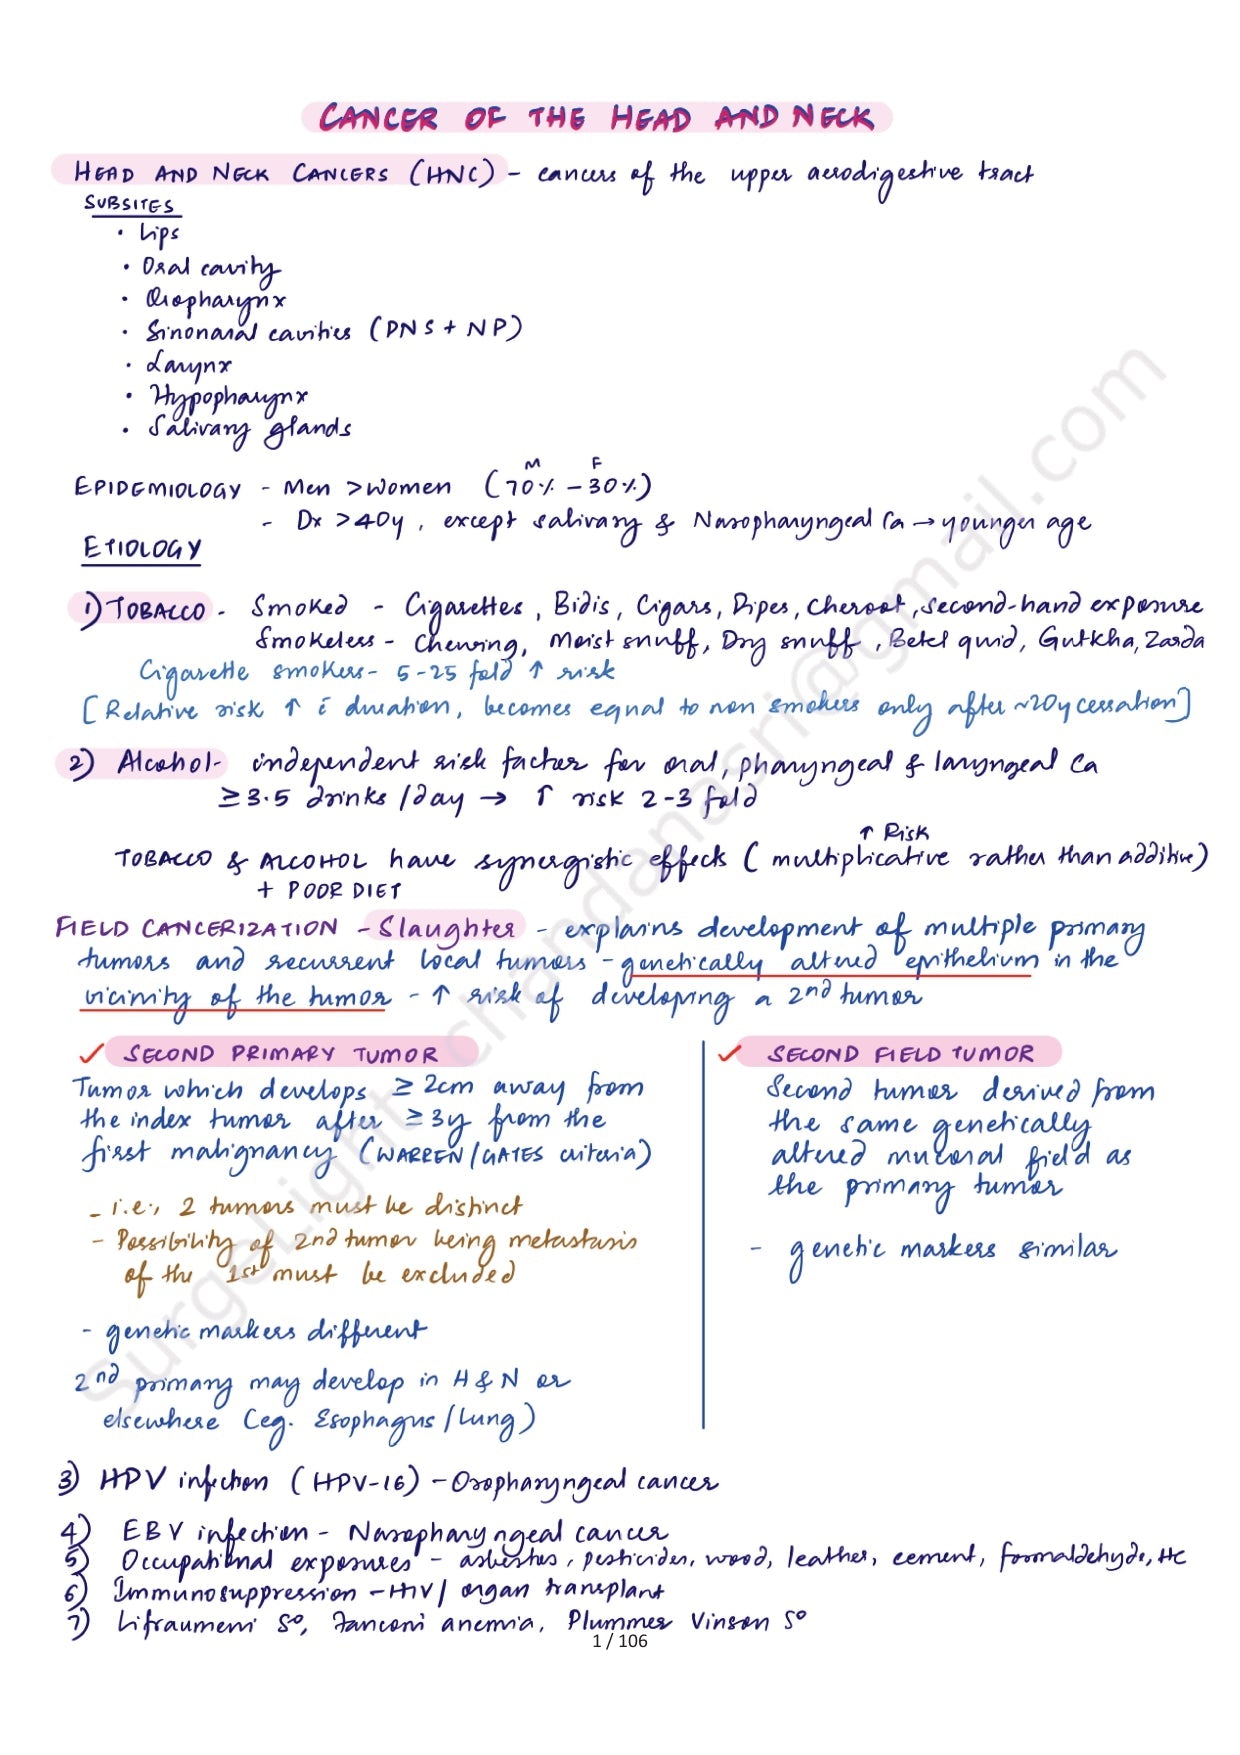 CANCER OF THE HEAD AND NECK
HEAD AND NECK CANCERS (HNC) - cancers of the upper aerodigestive tract
SUBSITES
• Lips
• Oral cavity
• Oropharynx
• Sinonasal cavities (PNS + NP)
• Larynx
• Hypopharynx
• Salivary glands
EPIDEMIOLOGY - Men > Women (70% - 30%)
M F
- Dx >40y, except salivary & Nasopharyngeal Ca → younger age
ETIOLOGY
1) TOBACCO - Smoked - Cigarettes, Bidis, Cigars, Pipes, Cheroot, Second-hand exposure
Smokeless - Chewing, Moist snuff, Dry snuff, Betel quid, Gutkha, Zarda
Cigarette smokers - 5-25 fold ↑ risk
[Relative risk ↑ c̄ duration, becomes equal to non smokers only after ~20y cessation]
2) Alcohol - independent risk factor for oral, pharyngeal & laryngeal Ca
≥3.5 drinks/day → ↑ risk 2-3 fold
↑ Risk
TOBACCO & ALCOHOL have synergistic effects (multiplicative rather than additive)
+ POOR DIET
FIELD CANCERIZATION - Slaughter - explains development of multiple primary
tumors and recurrent local tumors - genetically altered epithelium in the
vicinity of the tumor - ↑ risk of developing a 2nd tumor
✓ SECOND PRIMARY TUMOR
Tumor which develops ≥ 2cm away from
the index tumor after ≥3y from the
first malignancy (WARREN/GATES criteria)
- i.e., 2 tumors must be distinct
- Possibility of 2nd tumor being metastasis
of the 1st must be excluded
- genetic markers different
2nd primary may develop in H & N or
elsewhere (eg. Esophagus/Lung)
✓ SECOND FIELD TUMOR
Second tumor derived from
the same genetically
altered mucosal field as
the primary tumor
- genetic markers similar
3) HPV infection (HPV-16) - Oropharyngeal cancer
4) EBV infection - Nasopharyngeal cancer
5) Occupational exposures - asbestos, pesticides, wood, leather, cement, formaldehyde, HC
6) Immunosuppression - HIV/organ transplant
7) Lifraumeni S°, Fanconi anemia, Plummer Vinson S°
1 / 106
SurgeLight chandanasri@gmail.com